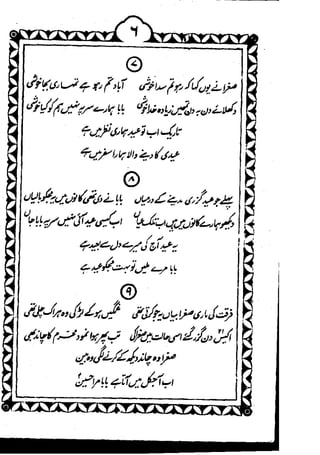 ۶
۷
صغرا نے یوں کہا کہ رہو تم سدا خوشی آباد تم رہو ہے تمہاری بجا خوشی
دکھلائے دن یہ دن تمہیں زیادہ خدا خوشی بابا ہمارے سر پہ نہیں ہم کو کیا خوشی
تاریک اب تو عید ہماری نظر میں ہے
عیدی کا دینے والا ہمارا سفر میں ہے
۸
پہلے جو عید گزری مدینے کے درمیاں بابا نے دی تھی کانوں میں مجھکو بالیاں
دیکھو ہمارے کانوں میں ہیں اب تلک عیاں اب کیسی عید آئی نہیں سر پہ بابا جاں
یہ عید آج کی میرے دل سے بعید ہے
بابا مرے ملیں تو بہت مجھکو عید ہے
۹
فرقت کی ماری صغرا بیاں یہ جو کرتی تھی غمگیں ہو کے لڑکی وہ ہر اک چلی تھی
اکیس دن گزر گئے اسی حالت میں صغرا کی تب پھر ہوا نمود محرم کا چاند بھی
صغرا وہ چاند دیکھ کے کرنے لگی وہ بین
اب آجکل میں آتا ہے بابا مرا حسینؑ